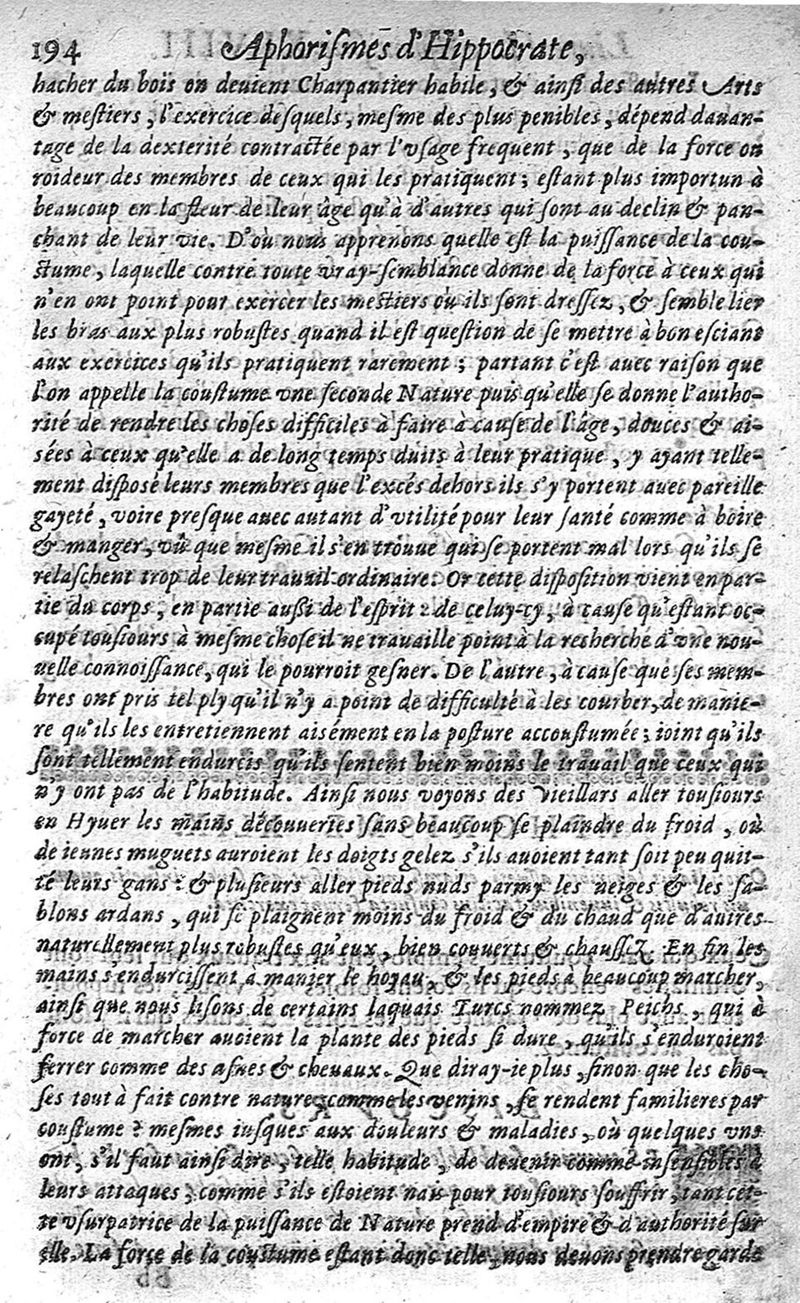 194 Aphorismes d'Hippocrate,
hacher du bois on deuient Charpantier habile, & ainsi des autres Arts
& mestiers, l'exercice desquels, mesme des plus penibles, dépend dauan-
tage de la dexterité contractée par l'vsage frequent, que de la force ou
roideur des membres de ceux qui les pratiquent; estant plus importun à
beaucoup en la fleur de leur âge qu'à d'autres qui sont au declin & pan-
chant de leur vie. D'où nous apprenons quelle est la puissance de la cou-
stume, laquelle contre toute vray-semblance donne de la force à ceux qui
n'en ont point pour exercer les mestiers où ils sont dressez, & semble lier
les bras aux plus robustes quand il est question de se mettre à bon esciant
aux exercices qu'ils pratiquent rarement; partant c'est auec raison que
l'on appelle la coustume vne seconde Nature puis qu'elle se donne l'autho-
rité de rendre les choses difficiles à faire à cause de l'âge, douces & ai-
sées à ceux qu'elle a de long temps duits à leur pratique, y ayant telle-
ment disposé leurs membres que l'excés dehors ils s'y portent auec pareille
gayeté, voire presque auec autant d'vtilité pour leur santé comme à boire
& manger, vû que mesme il s'en trouue qui se portent mal lors qu'ils se
relaschent trop de leur trauail ordinaire: Or cette disposition vient en par-
tie du corps, en partie aussi de l'esprit: de celuy-cy, à cause qu'estant oc-
cupé tousiours à mesme chose il ne trauaille point à la recherche d'vne nou-
uelle connoissance, qui le pourroit gesner. De l'autre, à cause que ses mem-
bres ont pris tel ply qu'il n'y a point de difficulté à les courber, de manie-
re qu'ils les entretiennent aisément en la posture accoustumée; ioint qu'ils
sont tellement endurcis qu'ils sentent bien moins le trauail que ceux qui
n'y ont pas de l'habitude. Ainsi nous voyons des Vieillars aller tousiours
en Hyuer les mains découuertes sans beaucoup se plaindre du froid, où
de ieunes muguets auroient les doigts gelez s'ils auoient tant soit peu quit-
té leurs gans: & plusieurs aller pieds nuds parmy les neiges & les sa-
blons ardans, qui se plaignent moins du froid & du chaud que d'autres
naturellement plus robustes qu'eux, bien couuerts & chaussez. En fin les
mains s'endurcissent à manier le hoyau, & les pieds à beaucoup marcher,
ainsi que nous lisons de certains laquais Turcs nommez Peichs, qui à
force de marcher auoient la plante des pieds si dure, qu'ils s'enduroient
ferrer comme des asnes & cheuaux. Que diray-ie plus, sinon que les cho-
ses tout à fait contre nature, comme les venins, se rendent familieres par
coustume? mesmes iusques aux douleurs & maladies, où quelques vns
ont, s'il faut ainsi dire, telle habitude, de deuenir comme insensibles à
leurs attaques, comme s'ils estoient nais pour tousiours souffrir, tant cet-
te vsurpatrice de la puissance de Nature prend d'empire & d'authorité sur
elle. La force de la coustume estant donc telle, nous deuons prendre garde